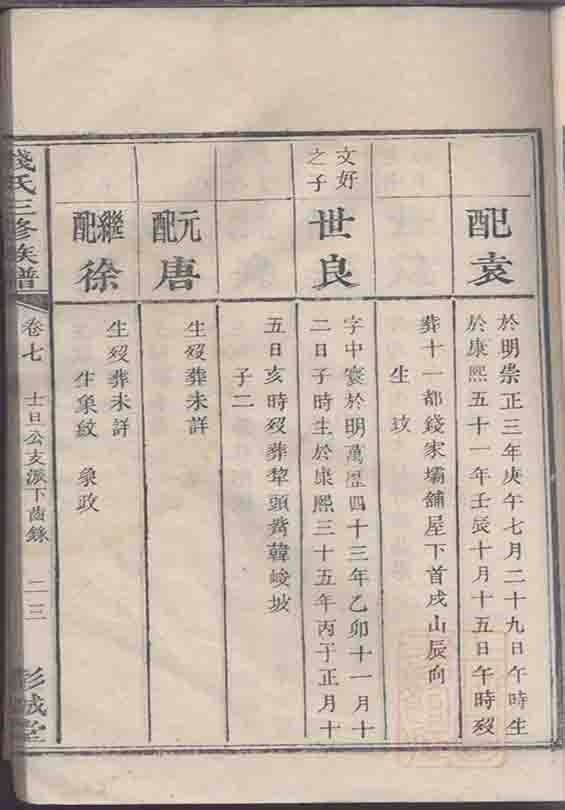 配袁
於明崇正三年庚午七月二十九日午時生
於康熙五十一年壬辰十月十五日午時歿
葬十一都錢家壩舖屋下首戌山辰向
生玟
文好
之子
世良
字中寰於明萬歷四十三年乙卯十一月十
二日子時生於康熙三十五年丙子正月十
五日亥時歿葬犂頭嘴韓峻坡
子二
元配
唐
生歿葬未詳
繼配
徐
生歿葬未詳
生象紋 象政
錢氏三修族譜
卷七
士旦公支派下齒錄
二三
彭城堂